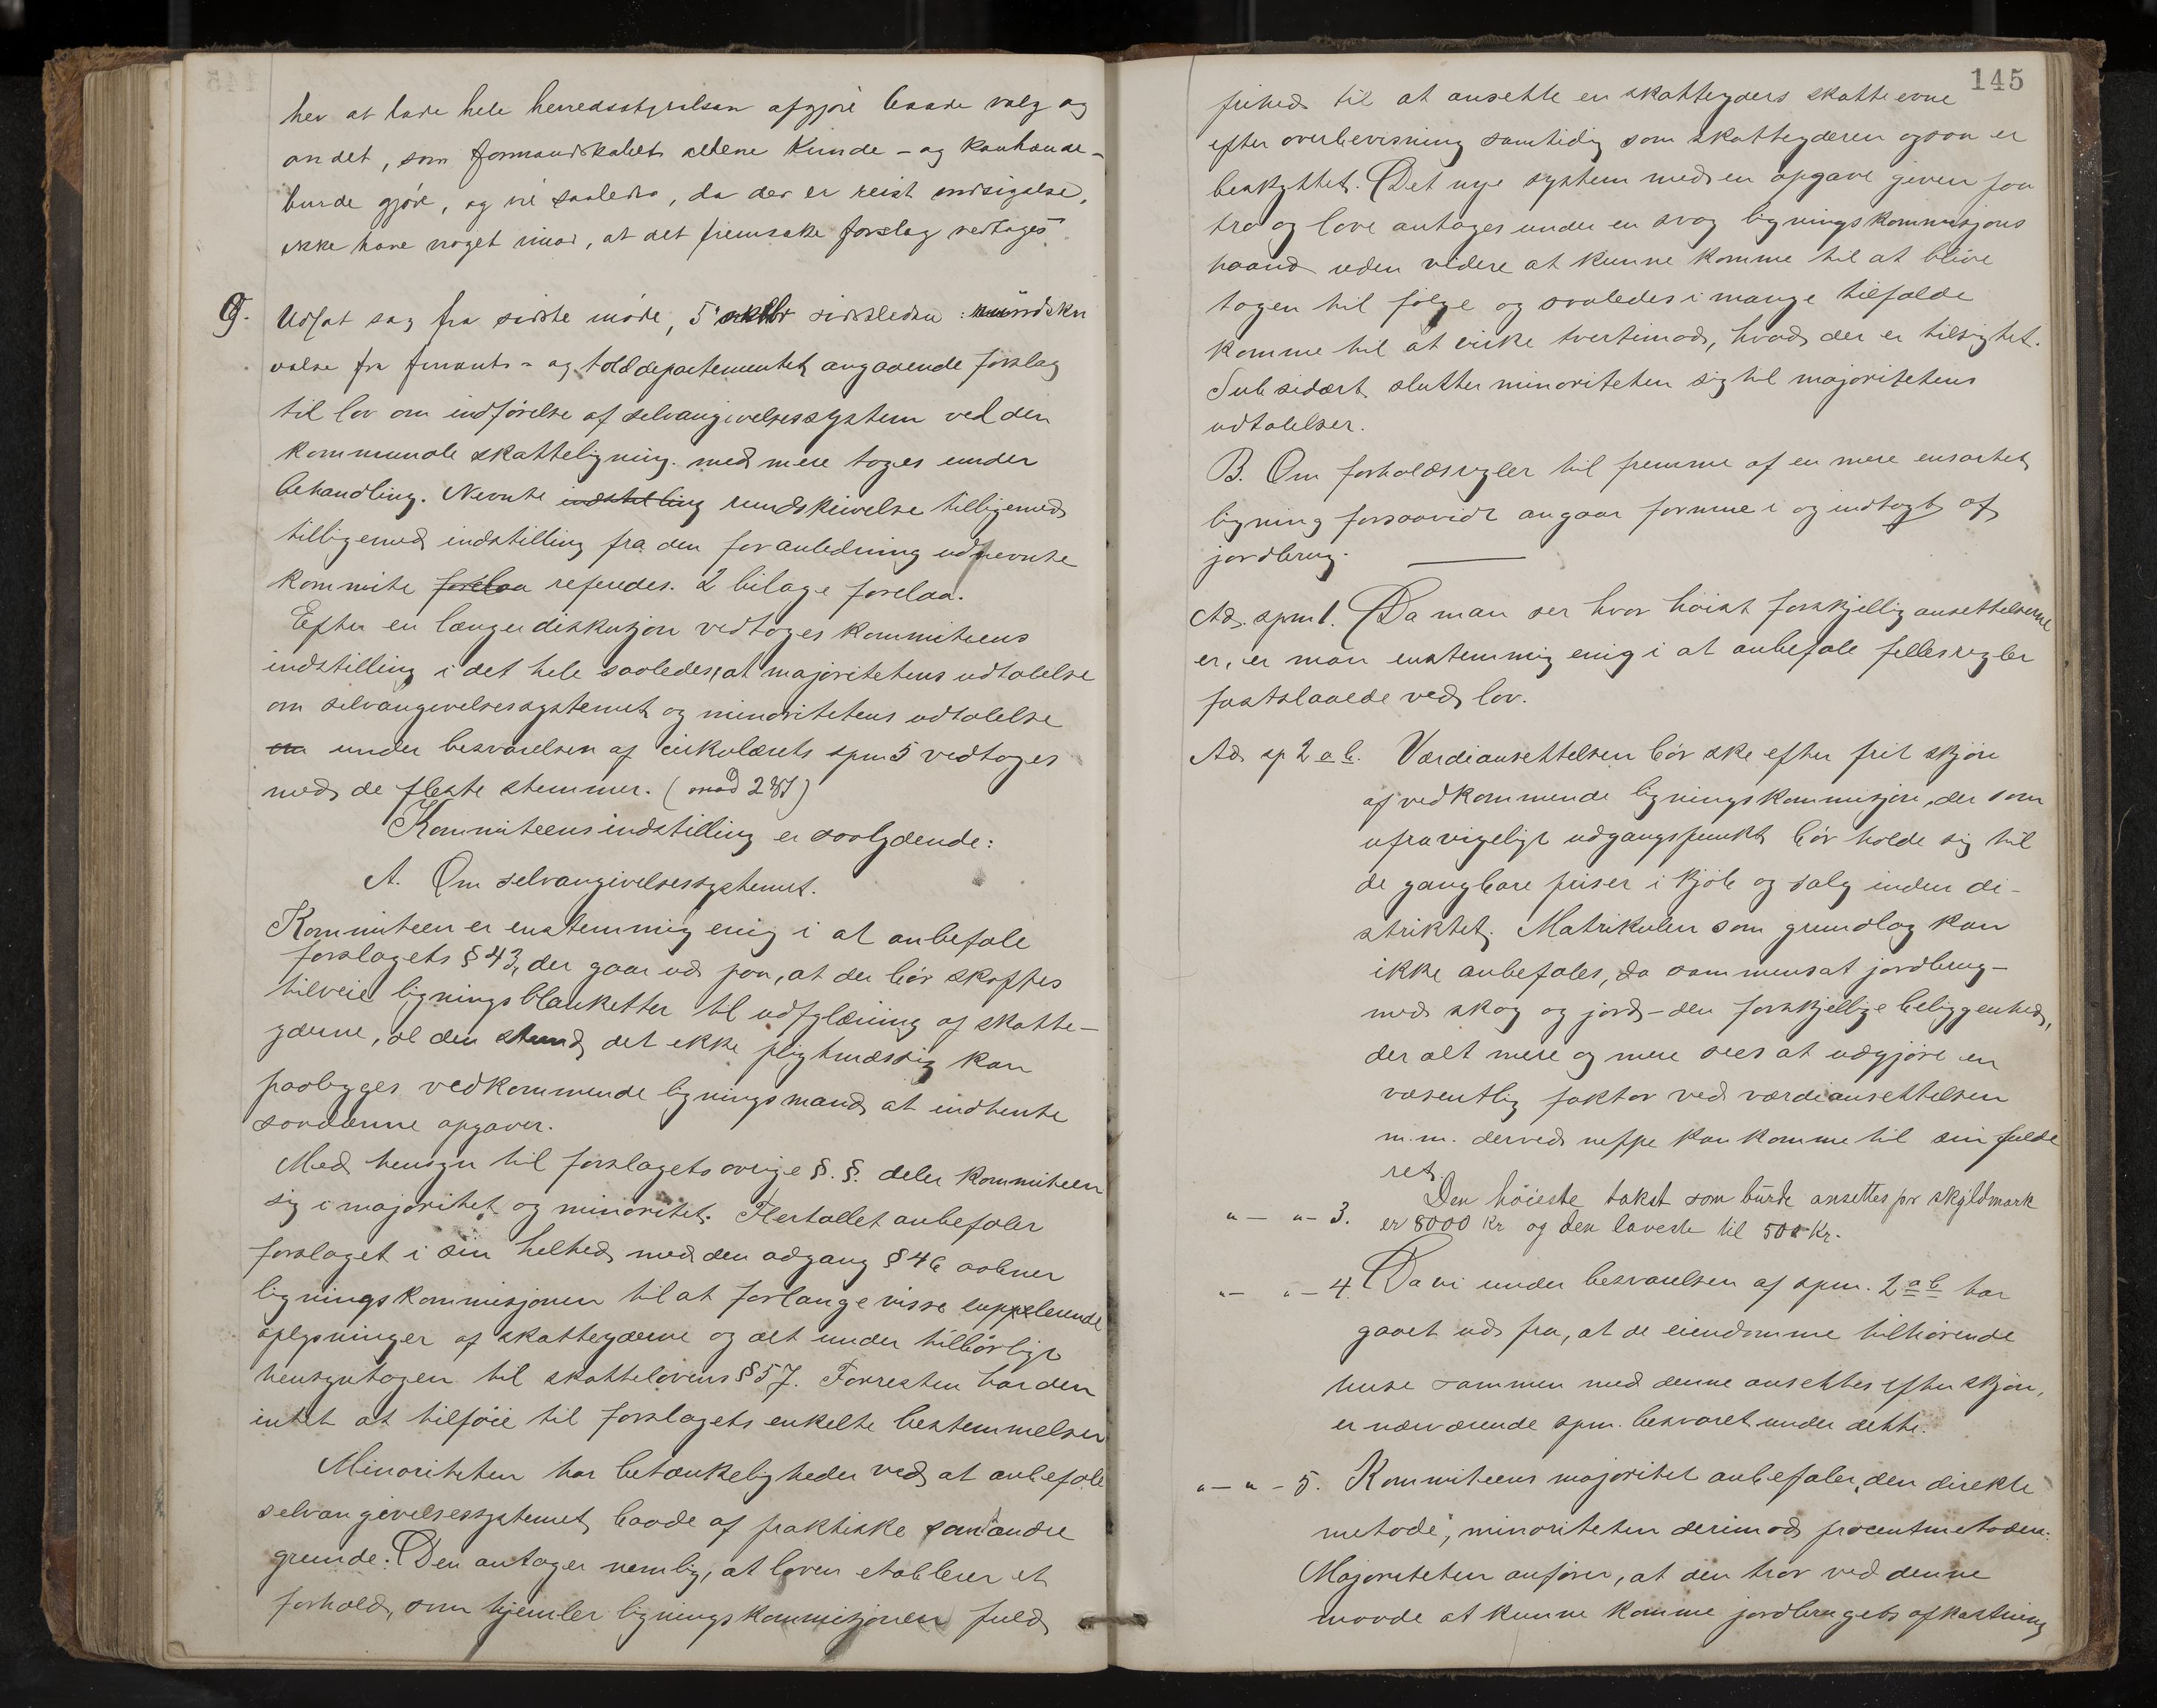 her at lade hele herredsstyrelsen afgjøre baade valg og
andet, som formandskabet aldene kunde - og kanhænde -
burde gjøre, og vil saaledes, da der er reist indsigelse,
ikke have noget imod, at det fremsatte forslag vedtages
9. Udsat sag fra sidste møde, 5 oktbr sidstleden: rundskri
velse fra finants- og tolddepartementet angaaende forslag
til lov om indførelse af selvangivelsessystem ved den
kommunale skatteligning med mere toges under
behandling. Nevnte indstilling rundskrivelse tilligemed
tilligemed indstilling fra den foranledning udnevnte
kommite forelaa referedes. 2 bilage forelaa.
Efter en længer diskusjon vedtoges kommiteens
indstilling i det hele saaledes, at majoritetens udtalelse
om selvangivelsessystemet og minoritetens udtalelse
om under besvarelsen af cirkulærets spm 5 vedtoges
med de fleste stemmer. (mod 2 )
Kommiteens indstilling er saalydende:
A. Om selvangivelsessystemet.
Kommiteen er enstemmig enig i at anbefale
forslagets § 43, der gaar ud paa, at der bør skaffes
tilveie ligningsblanketter til udfyldning af skatte-
yderne, al den stund det ikke pligtmæssig kan
paalygges vedkommende ligningsmand at indhente
saadanne opgaver.
Med hensyn til forslagets øvrige §.§. deler kommiteen
sig i majoritet og minoritet. Flertallet anbefaler
forslaget i sin helhed med den adgang § 46 aabner
ligningskommisjonen til at forlange visse supplerende
oplysninger af skatteyderne og alt under tilbørligt
hensyntagen til skattelovens § 57. Forresten har den
intet at tilføie til forslagets enkelte bestemmelser
Minoriteten har betænkeligheder ved at anbefale
selvangivelsessystemet baade af praktiske som andre
grunde. Den antager nemlig, at loven etablerer et
forhold, som hjemler ligningskommisjonen fuld
145
frihed til at ansette en skatteyders skatteevne
efter overbevisning samtidig som skatteyderen ogsaa er
beskyttet. Det nye system med en opgave given paa
tro og love antages under en svag ligningskommisjons
haand uden videre at kunne komme til at blive
tagen til følge og saaledes i mange tilfælde
komme til at virke tvertimod, hvad der er tilsigtet.
Subsidært slutter minoriteten sig til majoritetens
udtalelser.
B. Om forholdsregler til fremme af en mere ensartet
ligning forsaavidt angaar formue i og indtægt af
jordbrug.
Ad. spm 1. Da man ser hvor høist forskjellig ansettelserne
er, er man enstemmig enig i at anbefale fellesregler
fastslaaede ved lov.
Ad sp 2 a b. Værdiansettelsen bør ske efter frit skjøn
af vedkommende ligningskommisjon, der som
ufravigeligt udgangspunkt bør holde sig til
de gangbare priser i kjøb og salg inden di-
striktet. Matrikulen som grundlag kan
ikke anbefales, da sammensat jordbrug -
med skog og jord - den forskjellige beliggenhed,
der alt mere og mere sees at udgjøre en
væsentlig faktor ved værdiansettelsen
m.m. derved neppe kan komme til sin fulde
ret.
"— "— 3. Den høieste takst som burde ansettes pr skyldmark
er 8000 kr og den laveste til 500 kr.
"— "— 4. Da vi under besvarelsen af spm. 2 a b har
gaaet ud fra, at de eiendomme tilhørende
huse sammen med denne ansettes efter skjøn,
er nærværende spm. besvaret under dette.
"— "— 5. Kommiteens majoritet anbefaler „den direkte
metode", minoriteten derimod procentmetoden.
Majoriteten anfører, at den tror ved denne
maade at kunne komme jordbrugets afkastning